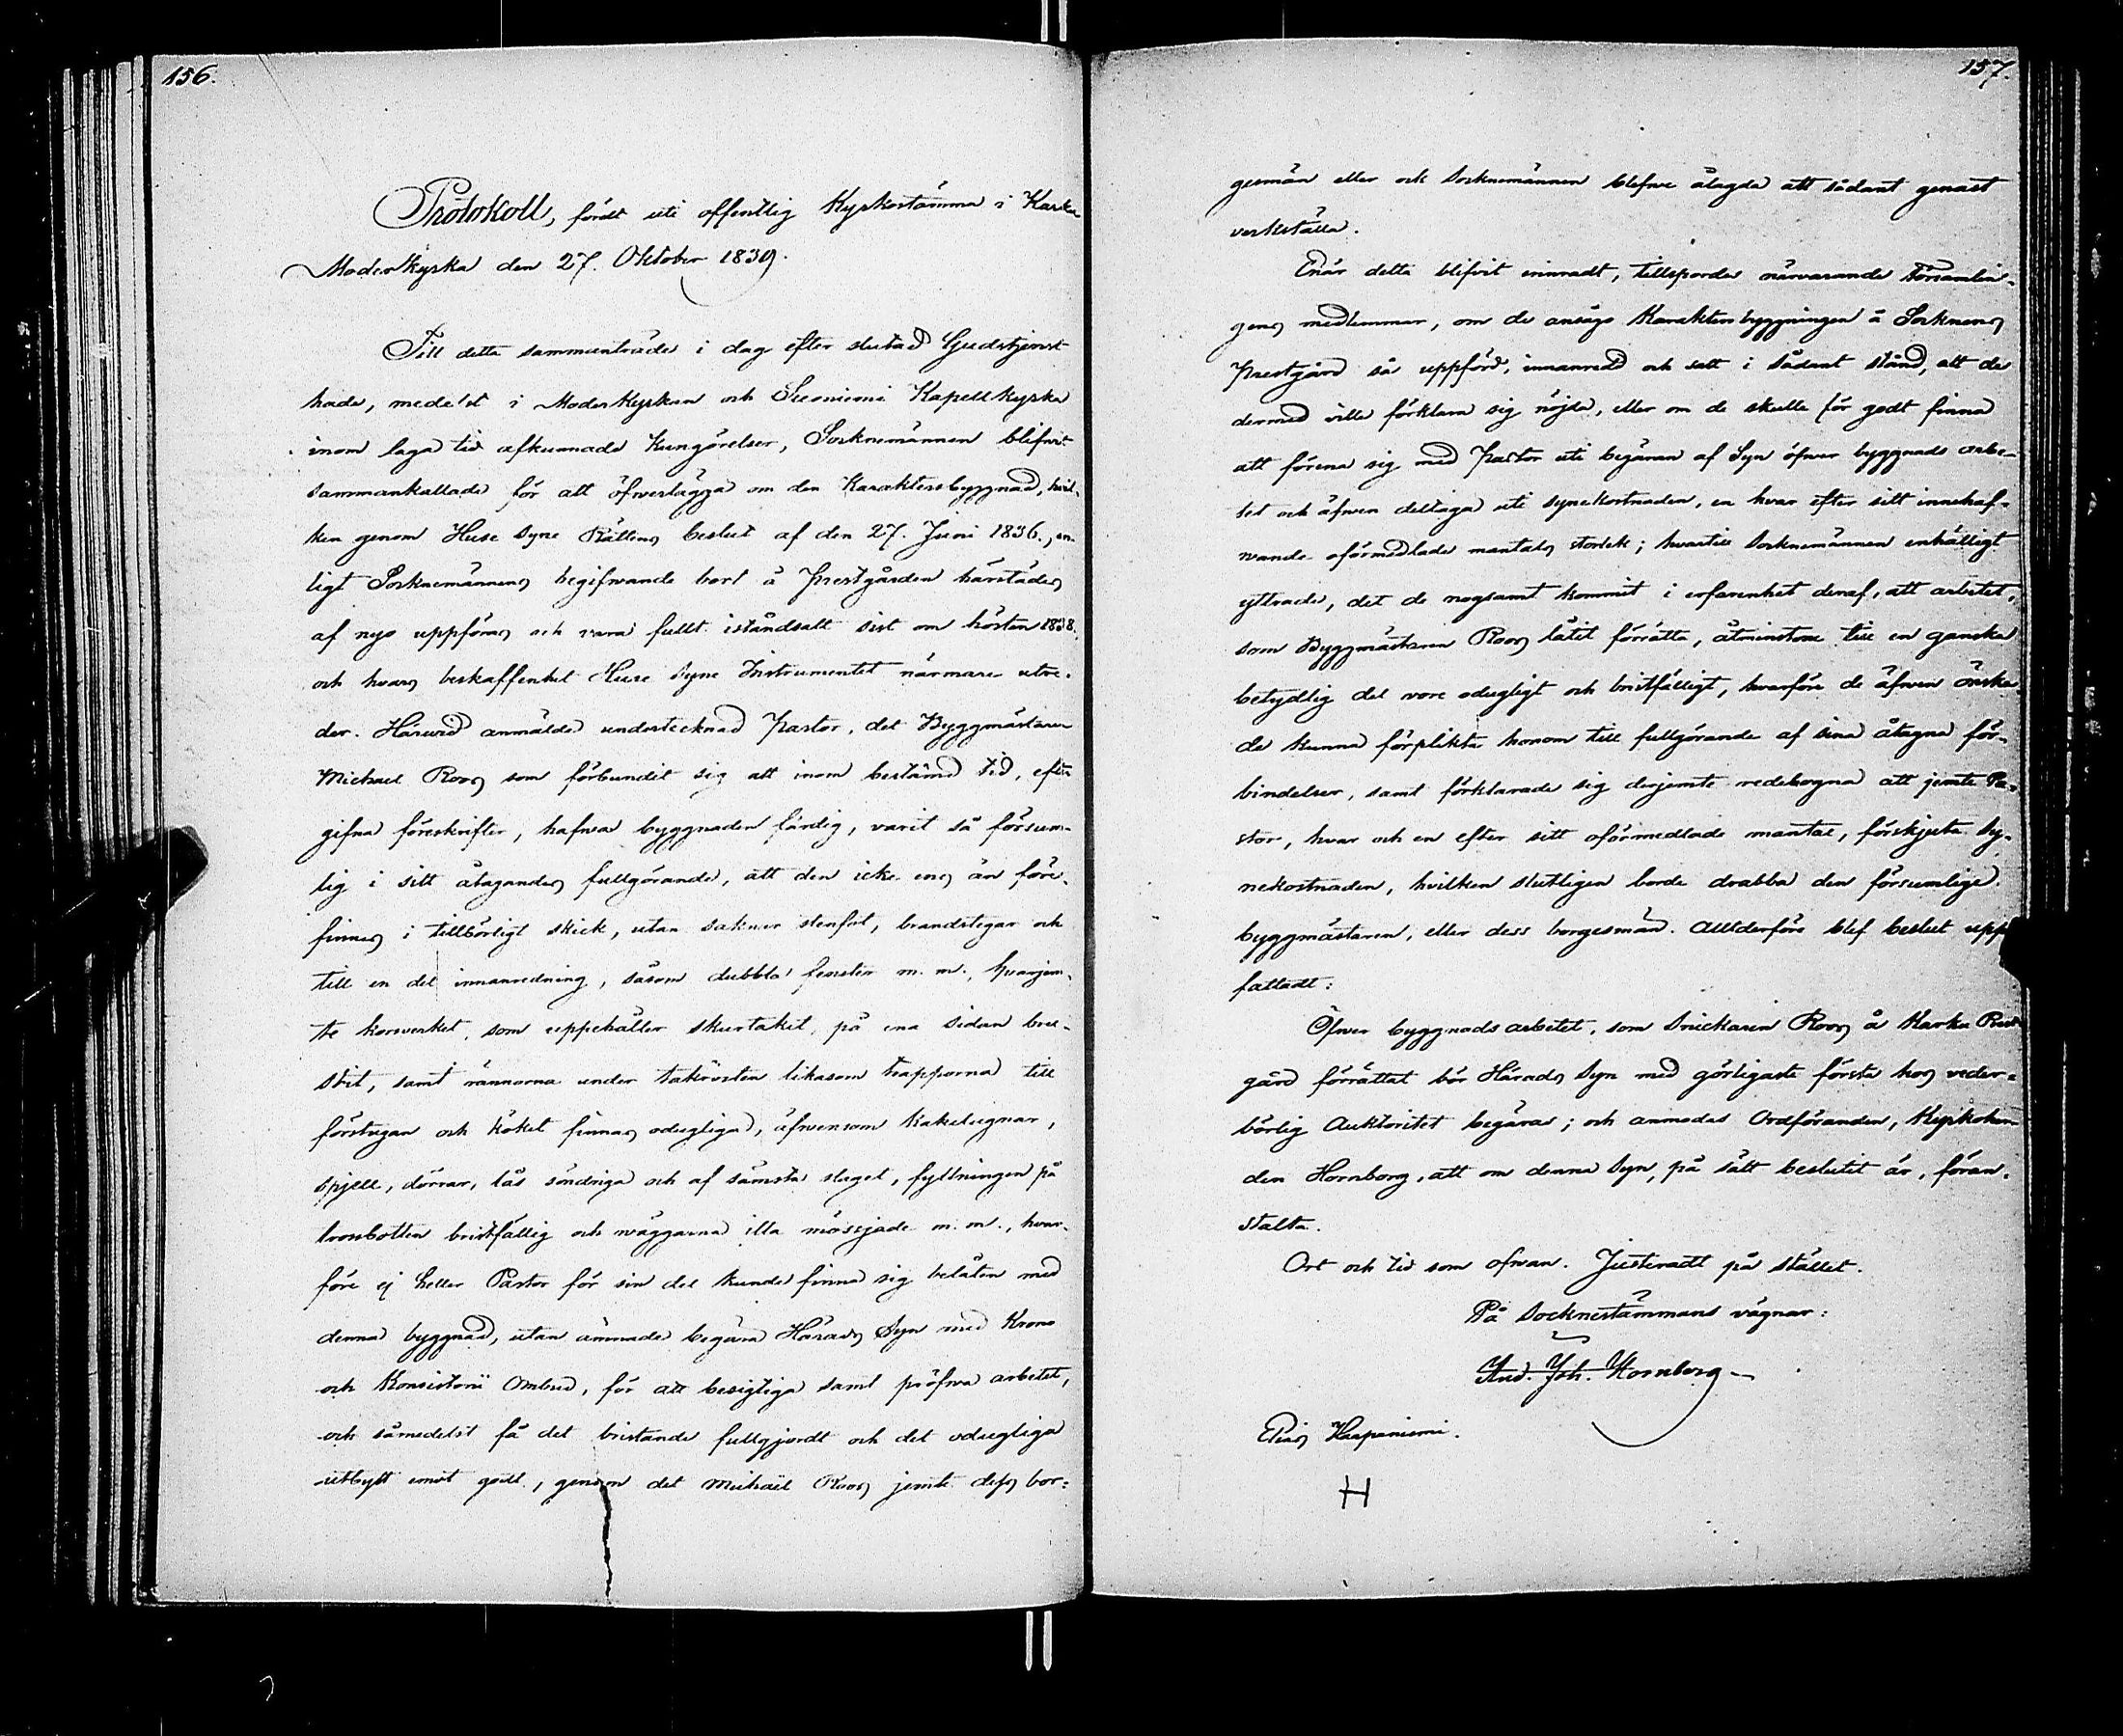 156.
Protokoll, fördt uti offentlig Kyrkostämma i Karku
Moderkyrka den 27. Oktober 1839.
Till detta sammanträde i dag efter slutad Gudstjenst
hade, medelst i Moderkyrkan och Suoniemi Kapellkyrka
inom laga tid afkunnade Kungörelser, Socknemännen blifvit
sammankallade för att öfverlägga om den Karaktersbyggnad, hvil-
ken genom Huse Syne Rättens beslut af den 27. Juni 1836., en-
ligt Socknemännens begifvande bort å Prestgården härstädes
af nyo uppföras och vara fullt iståndsatt sist om hösten 1838.,
och hvars beskaffenhet Huse Syne Instrumentet närmare utre-
der. Härvid anmälde undertecknad Pastor, det Byggmästaren
Michael Roos som förbundit sig att inom bestämd tid, efter
gifna föreskrifter, hafva byggnaden färdig, varit så försum-
lig i sitt åtagandes fullgörande, att den icke ens än före-
finnes i tillbörligt skick, utan saknar stenfot, brandstegar och
till en del innanredning, såsom dubbla fenster m. m., hvarjem-
te korsverket, som uppehåller skurtaket, på ena sidan bru-
stit, samt rännorna under takrösten likasom trapporna till
förstugan och köket finnas odugliga, äfvensom kakelugnar,
spjell, dörrar, lås söndriga och af sämsta slaget, fyllningen på
trossbotten bristfällig och väggarna illa mossjade m. m., hvar-
före ej heller Pastor för sin del kunde finna sig belåten med
denna byggnad, utan ämnade begära Härads Syn med Krono
och Konsistorii Ombud, för att besigtiga samt pröfva arbetet,
och såmedelst få det bristande fullgjordt och det odugliga
utbytt emot godt, genom det Michael Roos jemte dess bor-
157.
gesmän eller ock Socknemännen blefve ålagde att sådant genast
verkställa.
Enär detta blifvit erinradt, tillspordes närvarande Församlin-
gens medlemmar, om de ansågo Karaktersbyggningen å Socknens
Prestgård så uppförd, innanredd och satt i sådant stånd, att de
dermed ville förklara sig nöjda, eller om de skulle för godt finna
att förena sig med Pastor uti begäran af Syn öfver byggnads arbe-
tet och äfven deltaga uti synekostnaden, en hvar efter sitt innehaf-
vande oförmedlade mantals storlek; hvartill Socknemännen enhälligt
yttrade, det de nogsamt kommit i erfarenhet deraf, att arbetet,
som Byggmästaren Roos låtit förrätta, åtminstone till en ganska
betydlig del vore odugligt och bristfälligt, hvarföre de äfven önska-
de kunna förplikta honom till fullgörande af sina åtagna för-
bindelser, samt förklarade sig derjemte redebogna att jemte Pa-
stor, hvar och en efter sitt oförmedlade mantal, förskjuta Sy-
nekostnaden, hvilken slutligen borde drabba den försumlige
byggmästaren, eller dess borgesmän. Alltderföre blef beslut upp-
fattadt:
Öfver byggnads arbetet, som Snickaren Roos å Karku Prest-
gård förrättat bör Härads Syn med görligaste första hos veder-
börlig Auktoritet begäras; och anmodas Ordföranden, Kyrkoher-
den Hornborg, att om denna Syn, på sätt beslutit är, föran-
stalta.
Ort och tid som ofvan. Justeradt på stället.
På Socknestämmans vägnar:
And. Joh. Hornborg
Elias Haapaniemi.
H